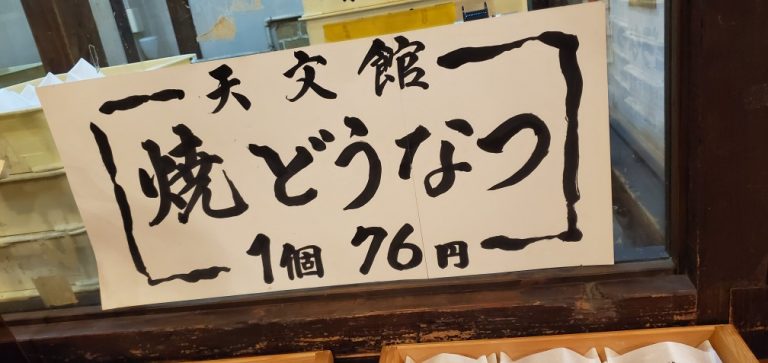 天文館
焼どうなつ
1個 76円